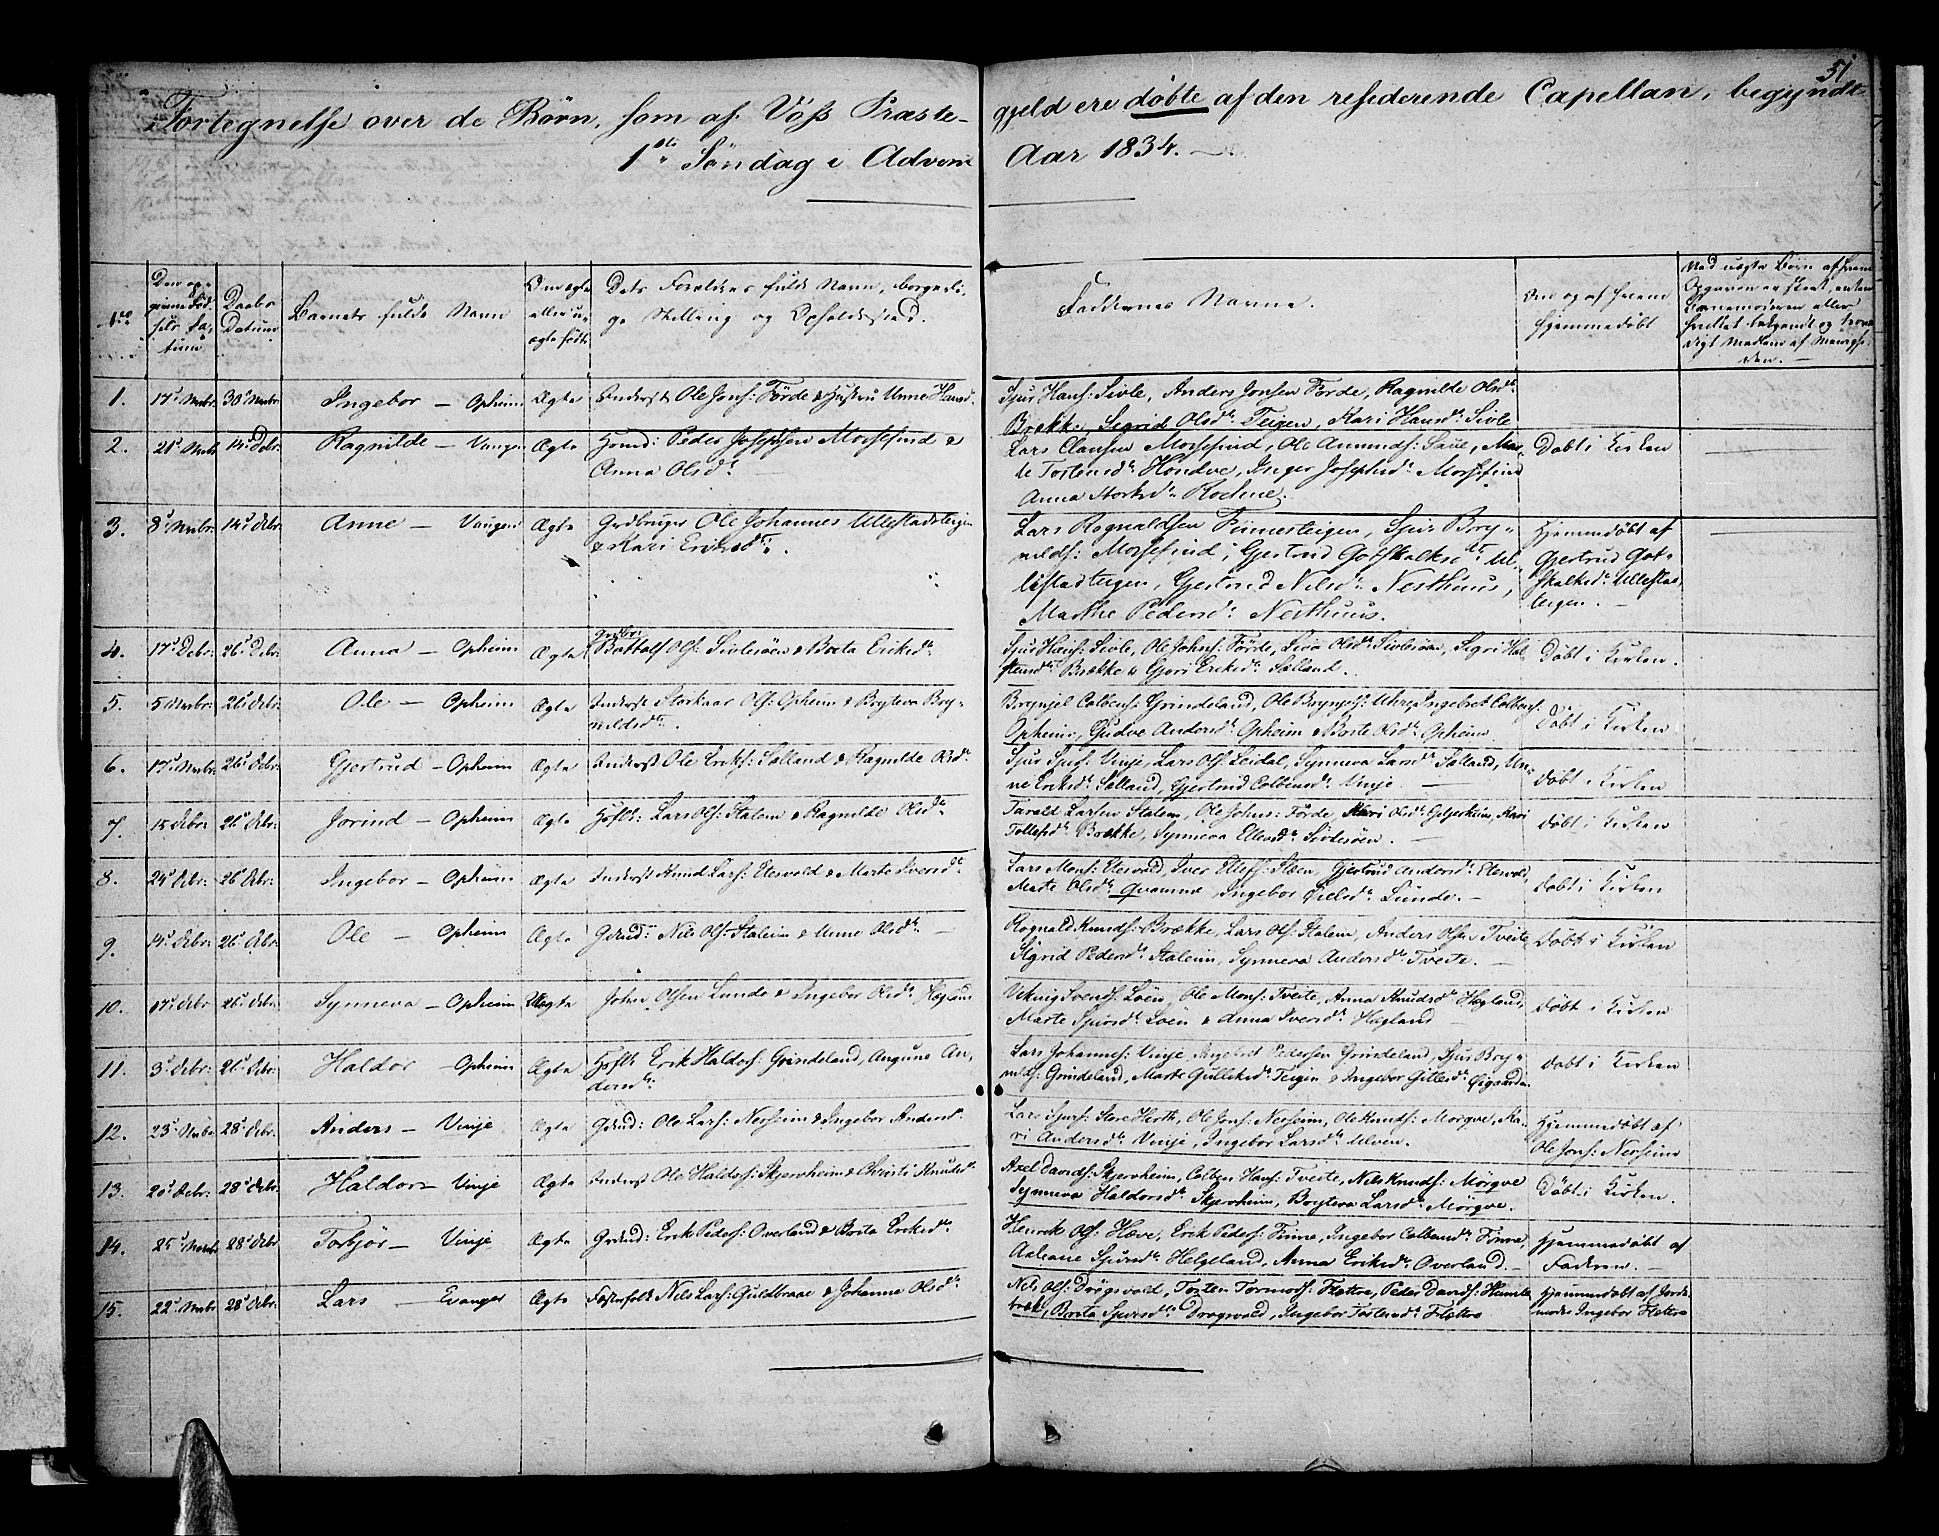 51
Fortegnelse over de Børn, som af Voss Præste-
gjeld ere døbte af den residerende Capellan, begyndt
1ste Søndag i Advent
Aar 1834.
No
Den op-
givne Fød-
sels Da-
tum
Daabs
Datum
Barnets fulde Navn
Om ægte
eller u-
ægte født
Dets Forældres fulde Navn, borgerli-
ge Stilling og Opholdssted.
Faddernes Navne.
Om og af hvem
hjemmedøbt
Ved uægte Børn af hvem
Opgaven er skeet, enten
Barnemoderen eller
hvilket bekjendt og trovær-
digt Medlem af Menighe-
den.
1. 17de Novbr 30te Novbr Ingebor - Opheim Ægte Inderst Ole Jons: Förde & Hustru Unne Hansd.
Sjur Hans: Sivle, Anders Jonsen Förde, Ragnilde Olsdtr
Brække, Sigrid Olsdtr Teigen, Kari Hansdtr Sivle
2. 14de Debr Ragnilde - Vangen Ægte Peder Josephsen Mossefind &
Anna Olsdtr
Lars Clausen Mossefind, Ole Amunds: Saue, Mar-
te Torbensdtr Hondve, Inger Josephsdtr Mossefind
Anna Rochne.
Døbt i Kirken
3. 8de Novbr: 14de Debr: Anne - Vangen Ægte Grdbruger Ole Johannes Ullestadteigen
& Kari Eriksdtr.
Lars Rognaldsen Finnesteigen, Sjur Bry-
nilds: Mossefind, Gjertrud Gotskalksdtr Ul-
lestadteigen, Gjertrud Nilsdtr Nesthuus,
Marthe Pedersdtr Nesthuus.
Hjemmedøbt af
Gjertrud Got-
skalksdtr Ullestad-
teigen.
4. 17de Debr: 26de Debr: Anna - Opheim Ægte Bottolf Ols: Sivlesöen & Brita Eriksdtr
Sjur Hans: Sivle, Ole Johns: Förde, Olsdtr Sivlesöen, Sigri Hal-
stensdtr Brække & Gjøri Eriksdtr Sælland.
Døbt i Kirken.
5. 5 Novbr: 26de Debr: Ole - Opheim Ægte Inderst Storkaar Ols: Opheim & Bryteva Bry-
nildsdtr.
Brynjel Colbens: Grindeland, Ole Brynjels: Uhre, Ingebret Colbens:
Opheim, Gudve Andersdtr Opheim & Brite Olsdtr Opheim
Døbt i Kirken
6. 17de Novbr: 26de Debr: Gjertrud - Opheim Ægte Inderst Ole Eriks: Sælland & Ragnilde Olsdtr:
Sjur Sjurs: Vinje, Lars Ols: Leidal, Synneva Larsdtr Sælland, Un-
ne Eriksdtr Sælland, Gjertrud Colbensdtr Vinje.
Døbt i Kirken
7. 15 Debr: 26de Debr: Jorind - Opheim Ægte Husfk: Lars Ols: Stalem & Ragnilde Olsdtr
Tarald Larsen Stalem, Ole Johns: Förde, Kari Olsdtr Kari
Tollefsdtr Brække, Synneva Ellendsdtr Sivlesöen.
Døbt i Kirken
8. 24de Debr: 26de Debr: Ingebor - Opheim Ægte Inderst Knud Lars: Elesvold & Marte Iversdtr
Lars Mons: Elesvold, Iver Gjertrud Andersdtr Elesvold,
Marte Olsdtr Qvamme, Ingebor Lunde.
Døbt i Kirken
9. 14de Debr: 26de Debr: Ole - Opheim Ægte Grdmd: Nils Ols: Stalem & Unne Olsdtr
Rognald Knuds: Brække, Lars Ols: Stalem, Anders Olsen Tveite
Sigrid Pedersdtr Stalem, Synneva Andersdtr Tveite.
Døbt i Kirken
10. 17de Debr 26de Debr: Synneva - Opheim Uægte Johan Olsen Lunde & Ingebor Olsdtr Hægland
Viking Svends: Löen, Ole Mons: Tveite, Anna Knudsdtr Hægland,
Marte Sjursdtr Löen & Anna Iversdtr Hægland
Døbt i Kirken
11. 3de Debr: 26de Debr: Haldor - Opheim Ægte Husfk Erik Haldors: Grindeland, Angune An-
dersdtr.
Lars Johannes: Vinje, Ingebret Pedersen Grindeland, Sjur Bry-
nilds: Grindeland, Marte Gulleiksdtr Teigen & Ingebor Øigarden
Døbt i Kirken
12. 23de Novbr 28de Debr: Anders - Vinje Ægte Grdmd: Ole Lars: Nersheim & Ingebor Andersdtr.
Lars Sjurs: Store Herth, Ole Jons: Nersheim, Ole Knuds: Mørqve, Ka-
ri Andersdtr Vinje, Ingebor Larsdtr Ulven.
Hjemmedøbt af
Ole Jons: Nersheim
13. 20de Debr: 28de Debr: Haldor - Vinje Ægte Inderst Ole Haldors: Skjerveheim & Christi Knudsdtr.
Axel Davids: Skjerveheim, Colben Hans: Tveite, Nils Knuds: Mørqve
Synneva Haldorsdtr Skjerveheim, Bryteva Larsdtr Mørqve.
Døbt i Kirken.
14. 25de Novbr 28de Debr Torbjör - Vinje Ægte Grdmd: Erik Peders: Overland & Brita Eriksdtr.
Henrik Ols: Hæve, Erik Peders: Finne, Ingebor Colbensdtr Finne,
Aaleane Sjursdtr Helgeland, Anna Eriksdtr Overland.
Hjemmedøbt af
Faderen.
15. 22de Novbr 28de Debr: Lars - Evanger Ægte Føderfolk Nils Lars: Guldbraae & Johanne Olsdtr
Nils Ols: Drögsvold, Torsten Tormods: Flettre, Peder Davids: Humle-
bræk, Brita Sjursdtr Drögsvold, Ingebor Torstensdtr Flettre
Hjemmedøbt af Jorde-
moder Ingebor Flettre